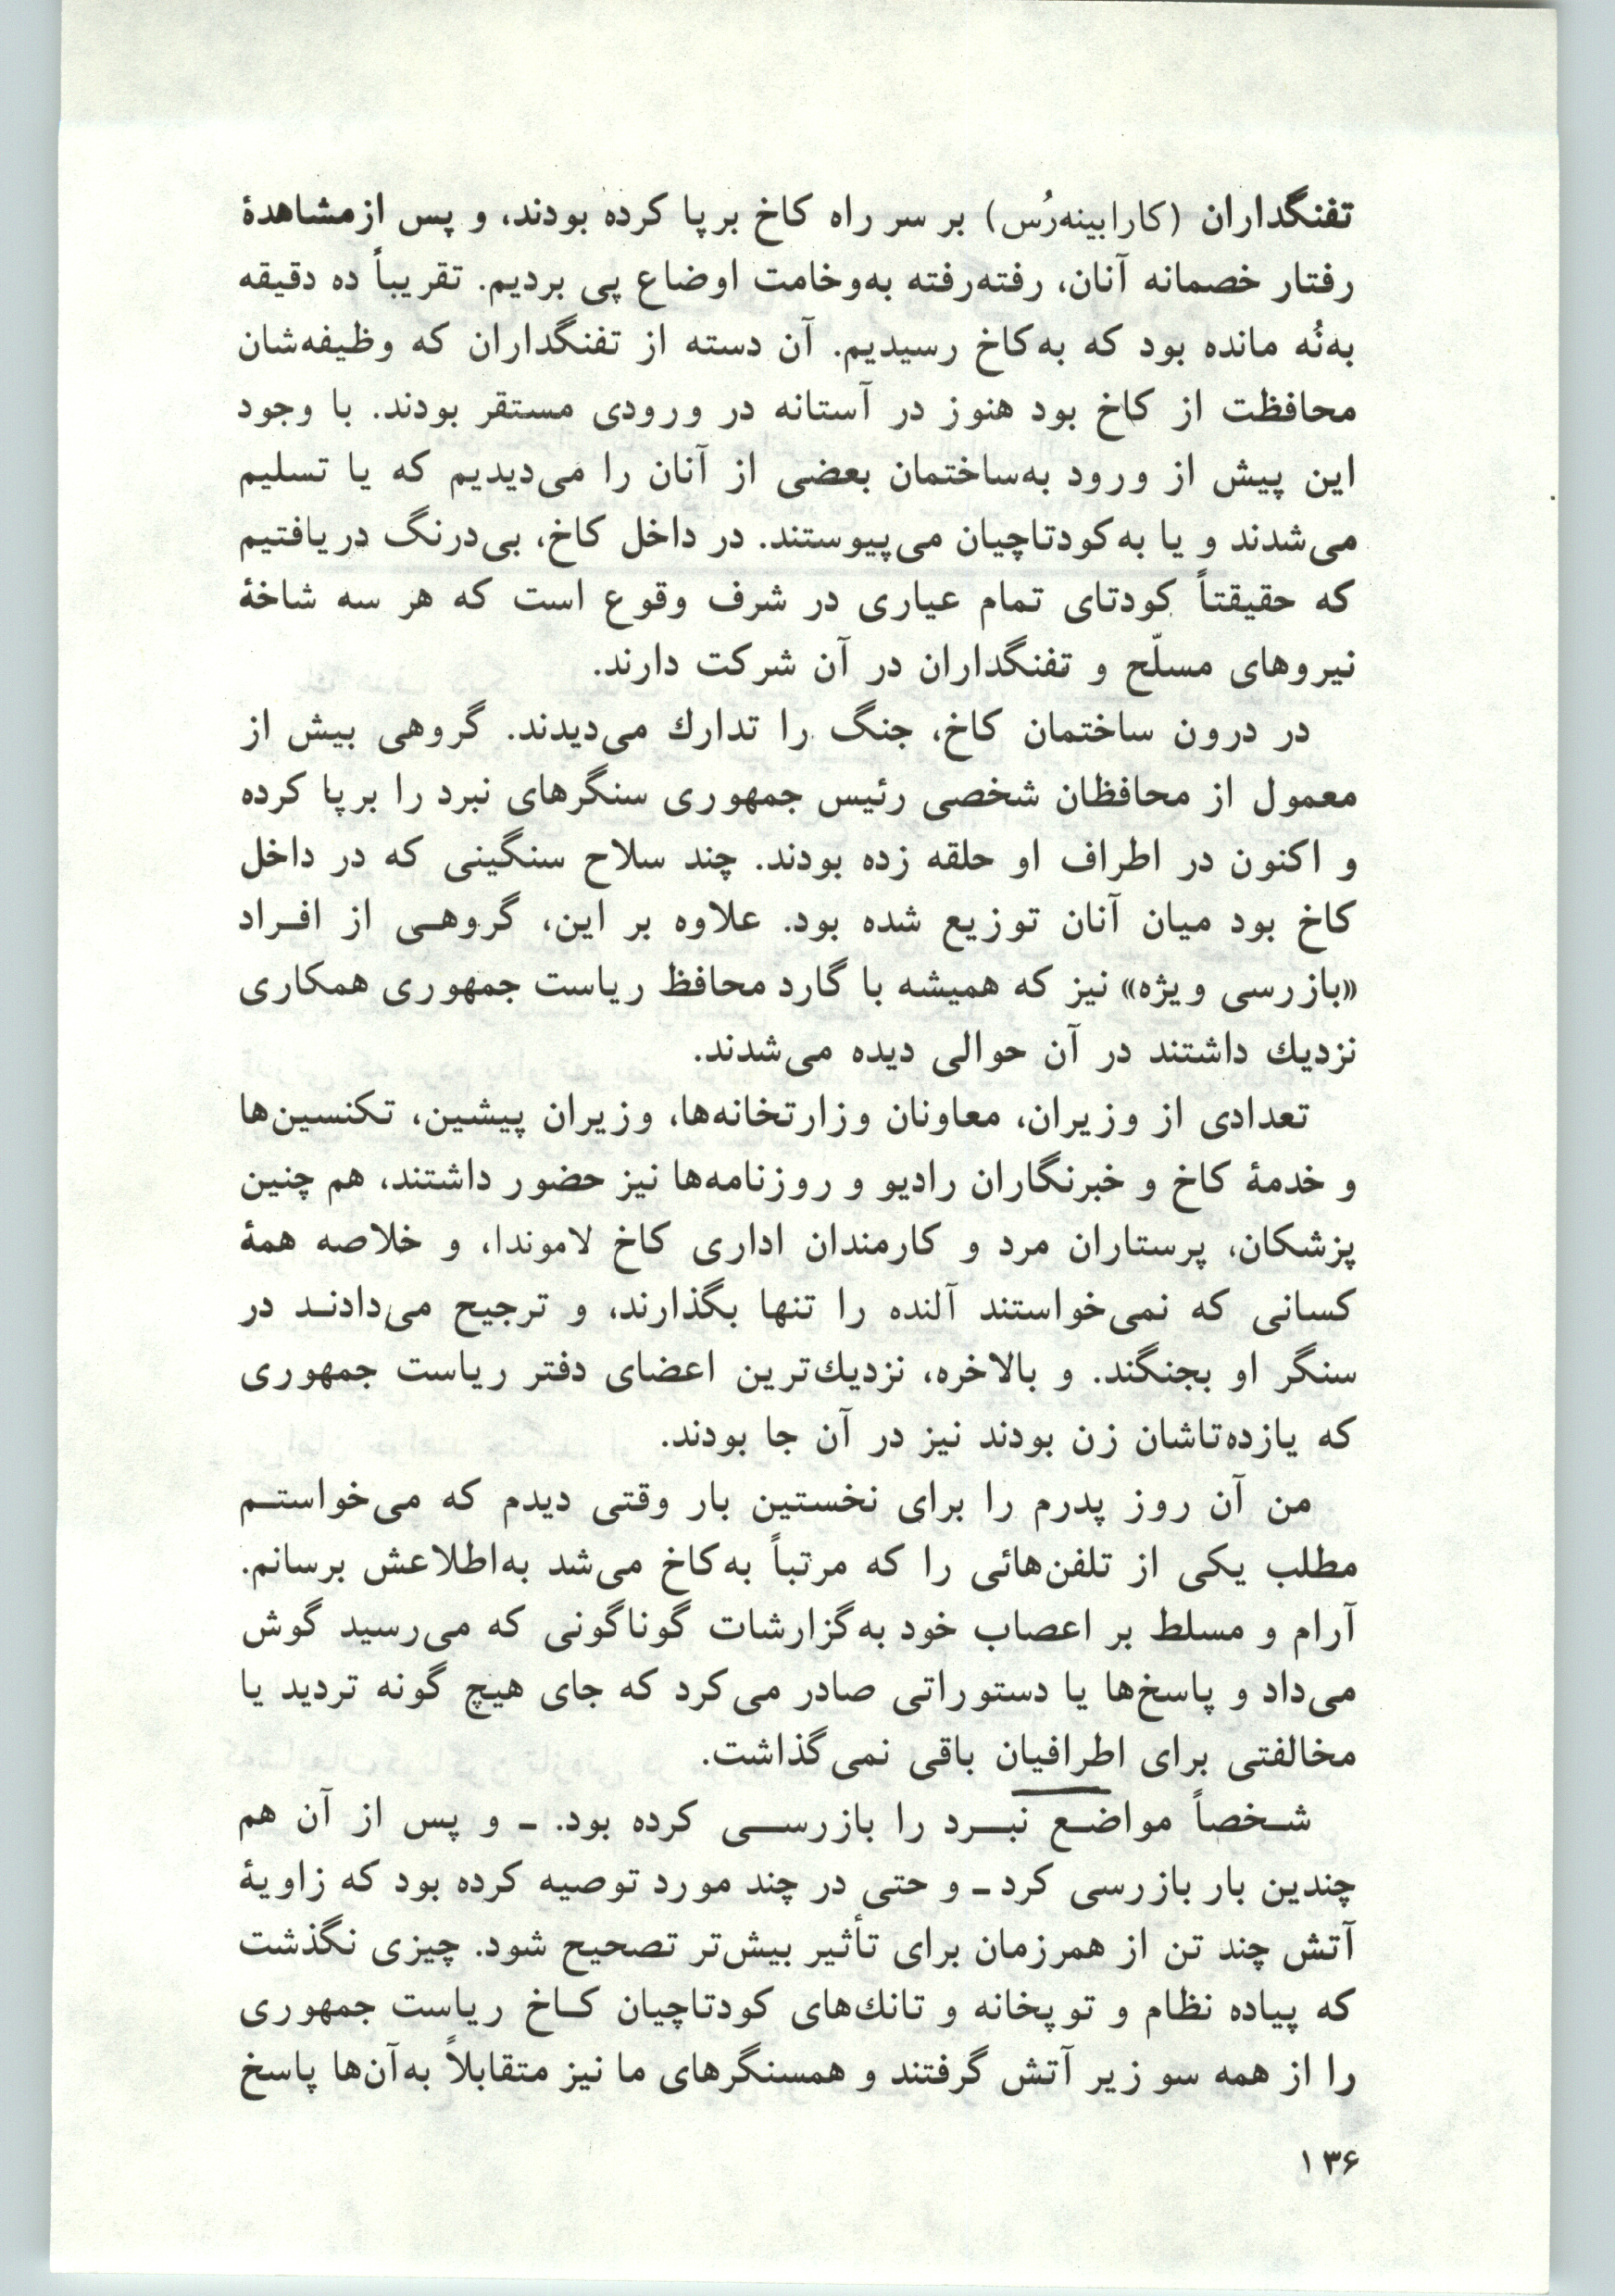 تفنگداران (کارابینه‌رُس) بر سر راه کاخ برپا کرده بودند، و پس ازمشاهدهٔ
رفتار خصمانه آنان، رفته‌رفته به‌وخامت اوضاع پی بردیم. تقریباً ده دقیقه
به‌نُه مانده بود که به‌کاخ رسیدیم. آن دسته از تفنگداران که وظیفه‌شان
محافظت از کاخ بود هنوز در آستانه در ورودی مستقر بودند. با وجود
این پیش از ورود به‌ساختمان بعضی از آنان را می‌دیدیم که یا تسلیم
می‌شدند و یا به‌کودتاچیان می‌پیوستند. در داخل کاخ، بی‌درنگ دریافتیم
که حقیقتاً کودتای تمام عیاری در شرف وقوع است که هر سه شاخهٔ
نیروهای مسلّح و تفنگداران در آن شرکت دارند.
در درون ساختمان کاخ، جنگ را تدارك می‌دیدند. گروهی بیش از
معمول از محافظان شخصی رئیس جمهوری سنگرهای نبرد را برپا کرده
و اکنون در اطراف او حلقه زده بودند. چند سلاح سنگینی که در داخل
کاخ بود میان آنان توزیع شده بود. علاوه بر این، گروهـی از افـراد
«بازرسی ویژه» نیز که همیشه با گارد محافظ ریاست جمهوری همکاری
نزدیك داشتند در آن حوالی دیده می‌شدند.
تعدادی از وزیران، معاونان وزارتخانه‌ها، وزیران پیشین، تکنسین‌ها
و خدمهٔ کاخ و خبرنگاران رادیو و روزنامه‌ها نیز حضور داشتند، هم چنین
پزشکان، پرستاران مرد و کارمندان اداری کاخ لاموندا، و خلاصه همهٔ
کسانی که نمی‌خواستند آلنده را تنها بگذارند، و ترجیح می‌دادنـد در
سنگر او بجنگند. و بالاخره، نزدیك‌ترین اعضای دفتر ریاست جمهوری
که یازده‌تاشان زن بودند نیز در آن جا بودند.
من آن روز پدرم را برای نخستین بار وقتی دیدم که می‌خواستـم
مطلب یکی از تلفن‌هائی را که مرتباً به‌کاخ می‌شد به‌اطلاعش برسانم.
آرام و مسلط بر اعصاب خود به‌گزارشات گوناگونی که می‌رسید گوش
می‌داد و پاسخ‌ها یا دستوراتی صادر می‌کرد که جای هیچ گونه تردید یا
مخالفتی برای اطرافیان باقی نمی‌گذاشت.
شـخصاً مواضـع نبـرد را بازرسـی کرده بود. ـ و پس از آن هم
چندین بار بازرسی کرد ـ و حتی در چند مورد توصیه کرده بود که زاویهٔ
آتش چند تن از همرزمان برای تأثیر بیش‌تر تصحیح شود. چیزی نگذشت
که پیاده نظام و توپخانه و تانك‌های کودتاچیان کـاخ ریاست جمهوری
را از همه سو زیر آتش گرفتند و همسنگرهای ما نیز متقابلاً به‌آن‌ها پاسخ
۱۳۶